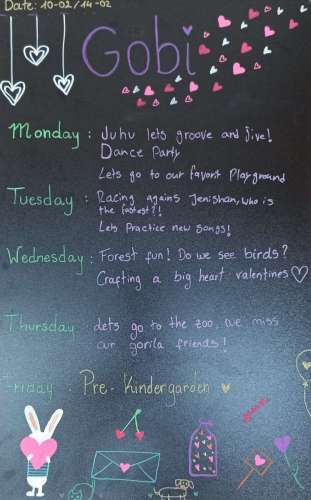 Date: 10-02/14-02
Gobi
Monday : Juhu lets groove and jive!
Dance Party
Lets go to our favorit Playground
Tuesday : Racing agains Jenishan, who is
the fastest?!
Lets Practice new songs!
Wednesday : Forest fun! Do we see birds?
Crafting a big heart valentines
Thursday : Lets go to the zoo, we miss
our gorila friends!
Friday : Pre-Kindergarden